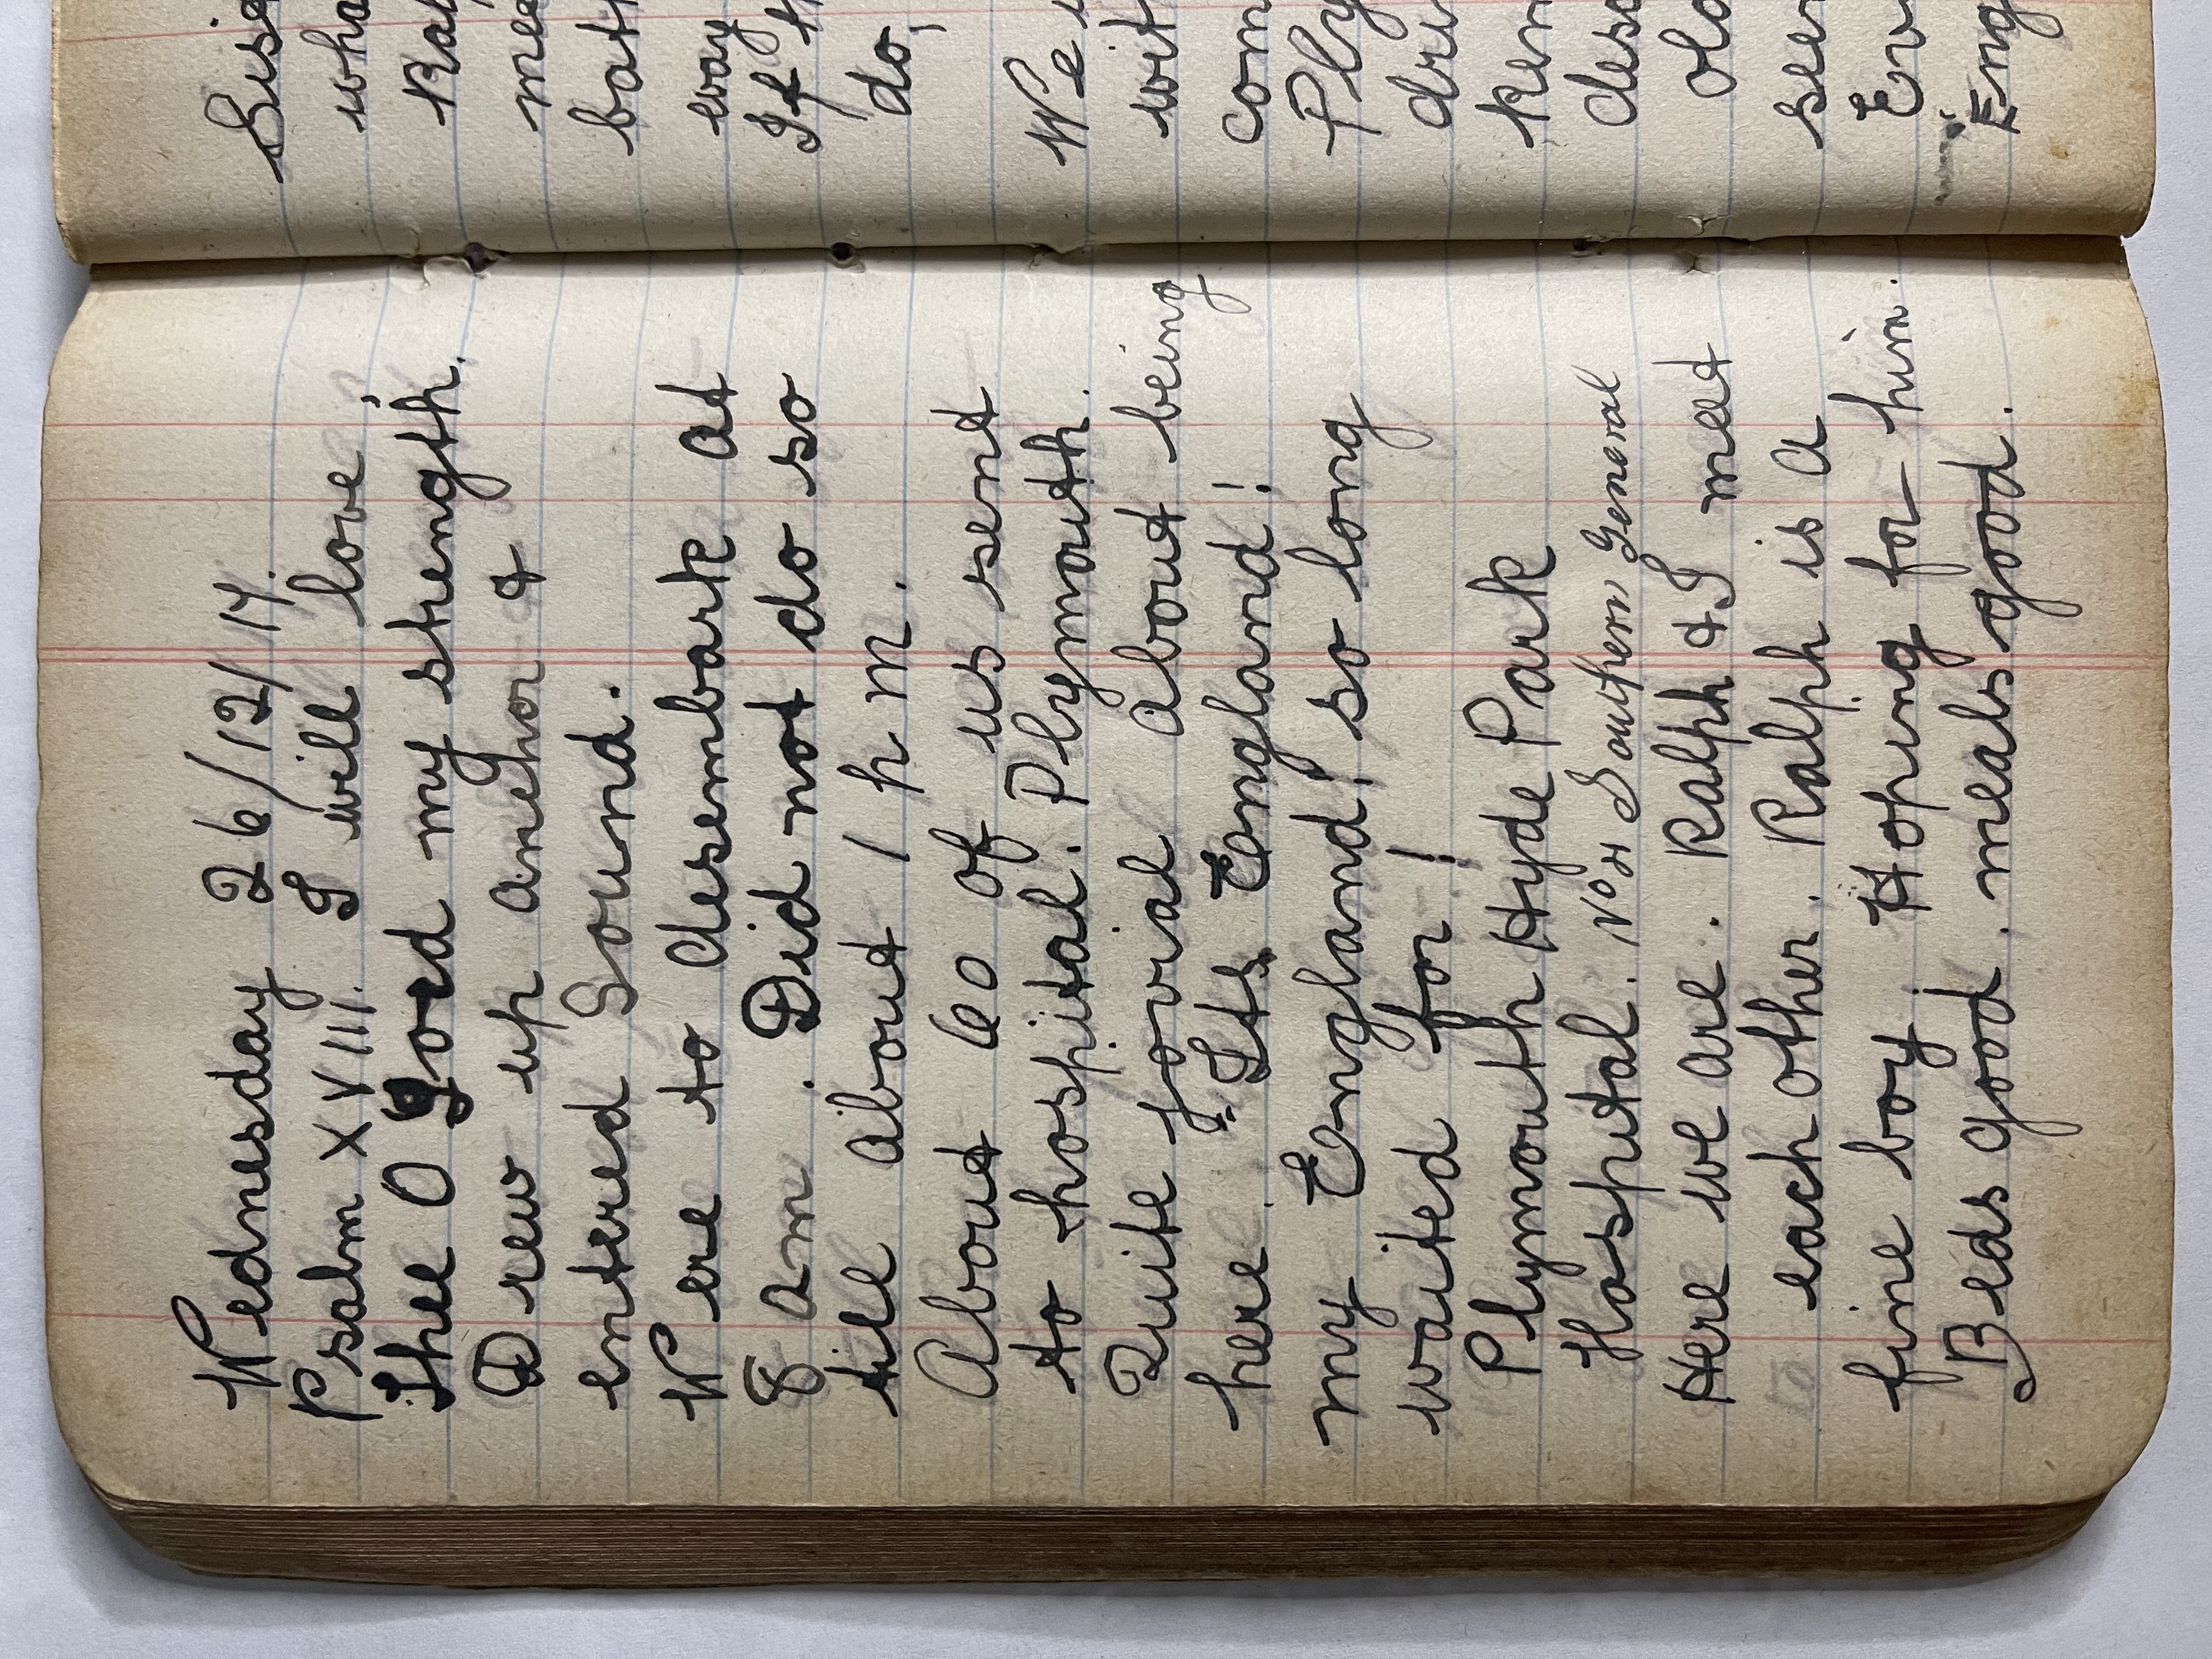 Wednesday 26/12/17.
Psalm XVIII. I will love
Thee O Lord my strength.
Drew up anchor &
entered Sound.
Were to desembark at
8 am. Did not do so
till about 1 p m.
About 60 of us sent
to hospital. Plymouth.
Quite jovial about being
here. "Its England!
my England! so long
waited for!
Plymouth Hyde Park
Hospital. No 4 Southern General
Here we are. Ralph & I meet
each other. Ralph is a
fine boy. Hoping for him.
Beds good. meals good.
wha
mee
way
If
do,
We
wit
com
Ply
ken
old
Eng